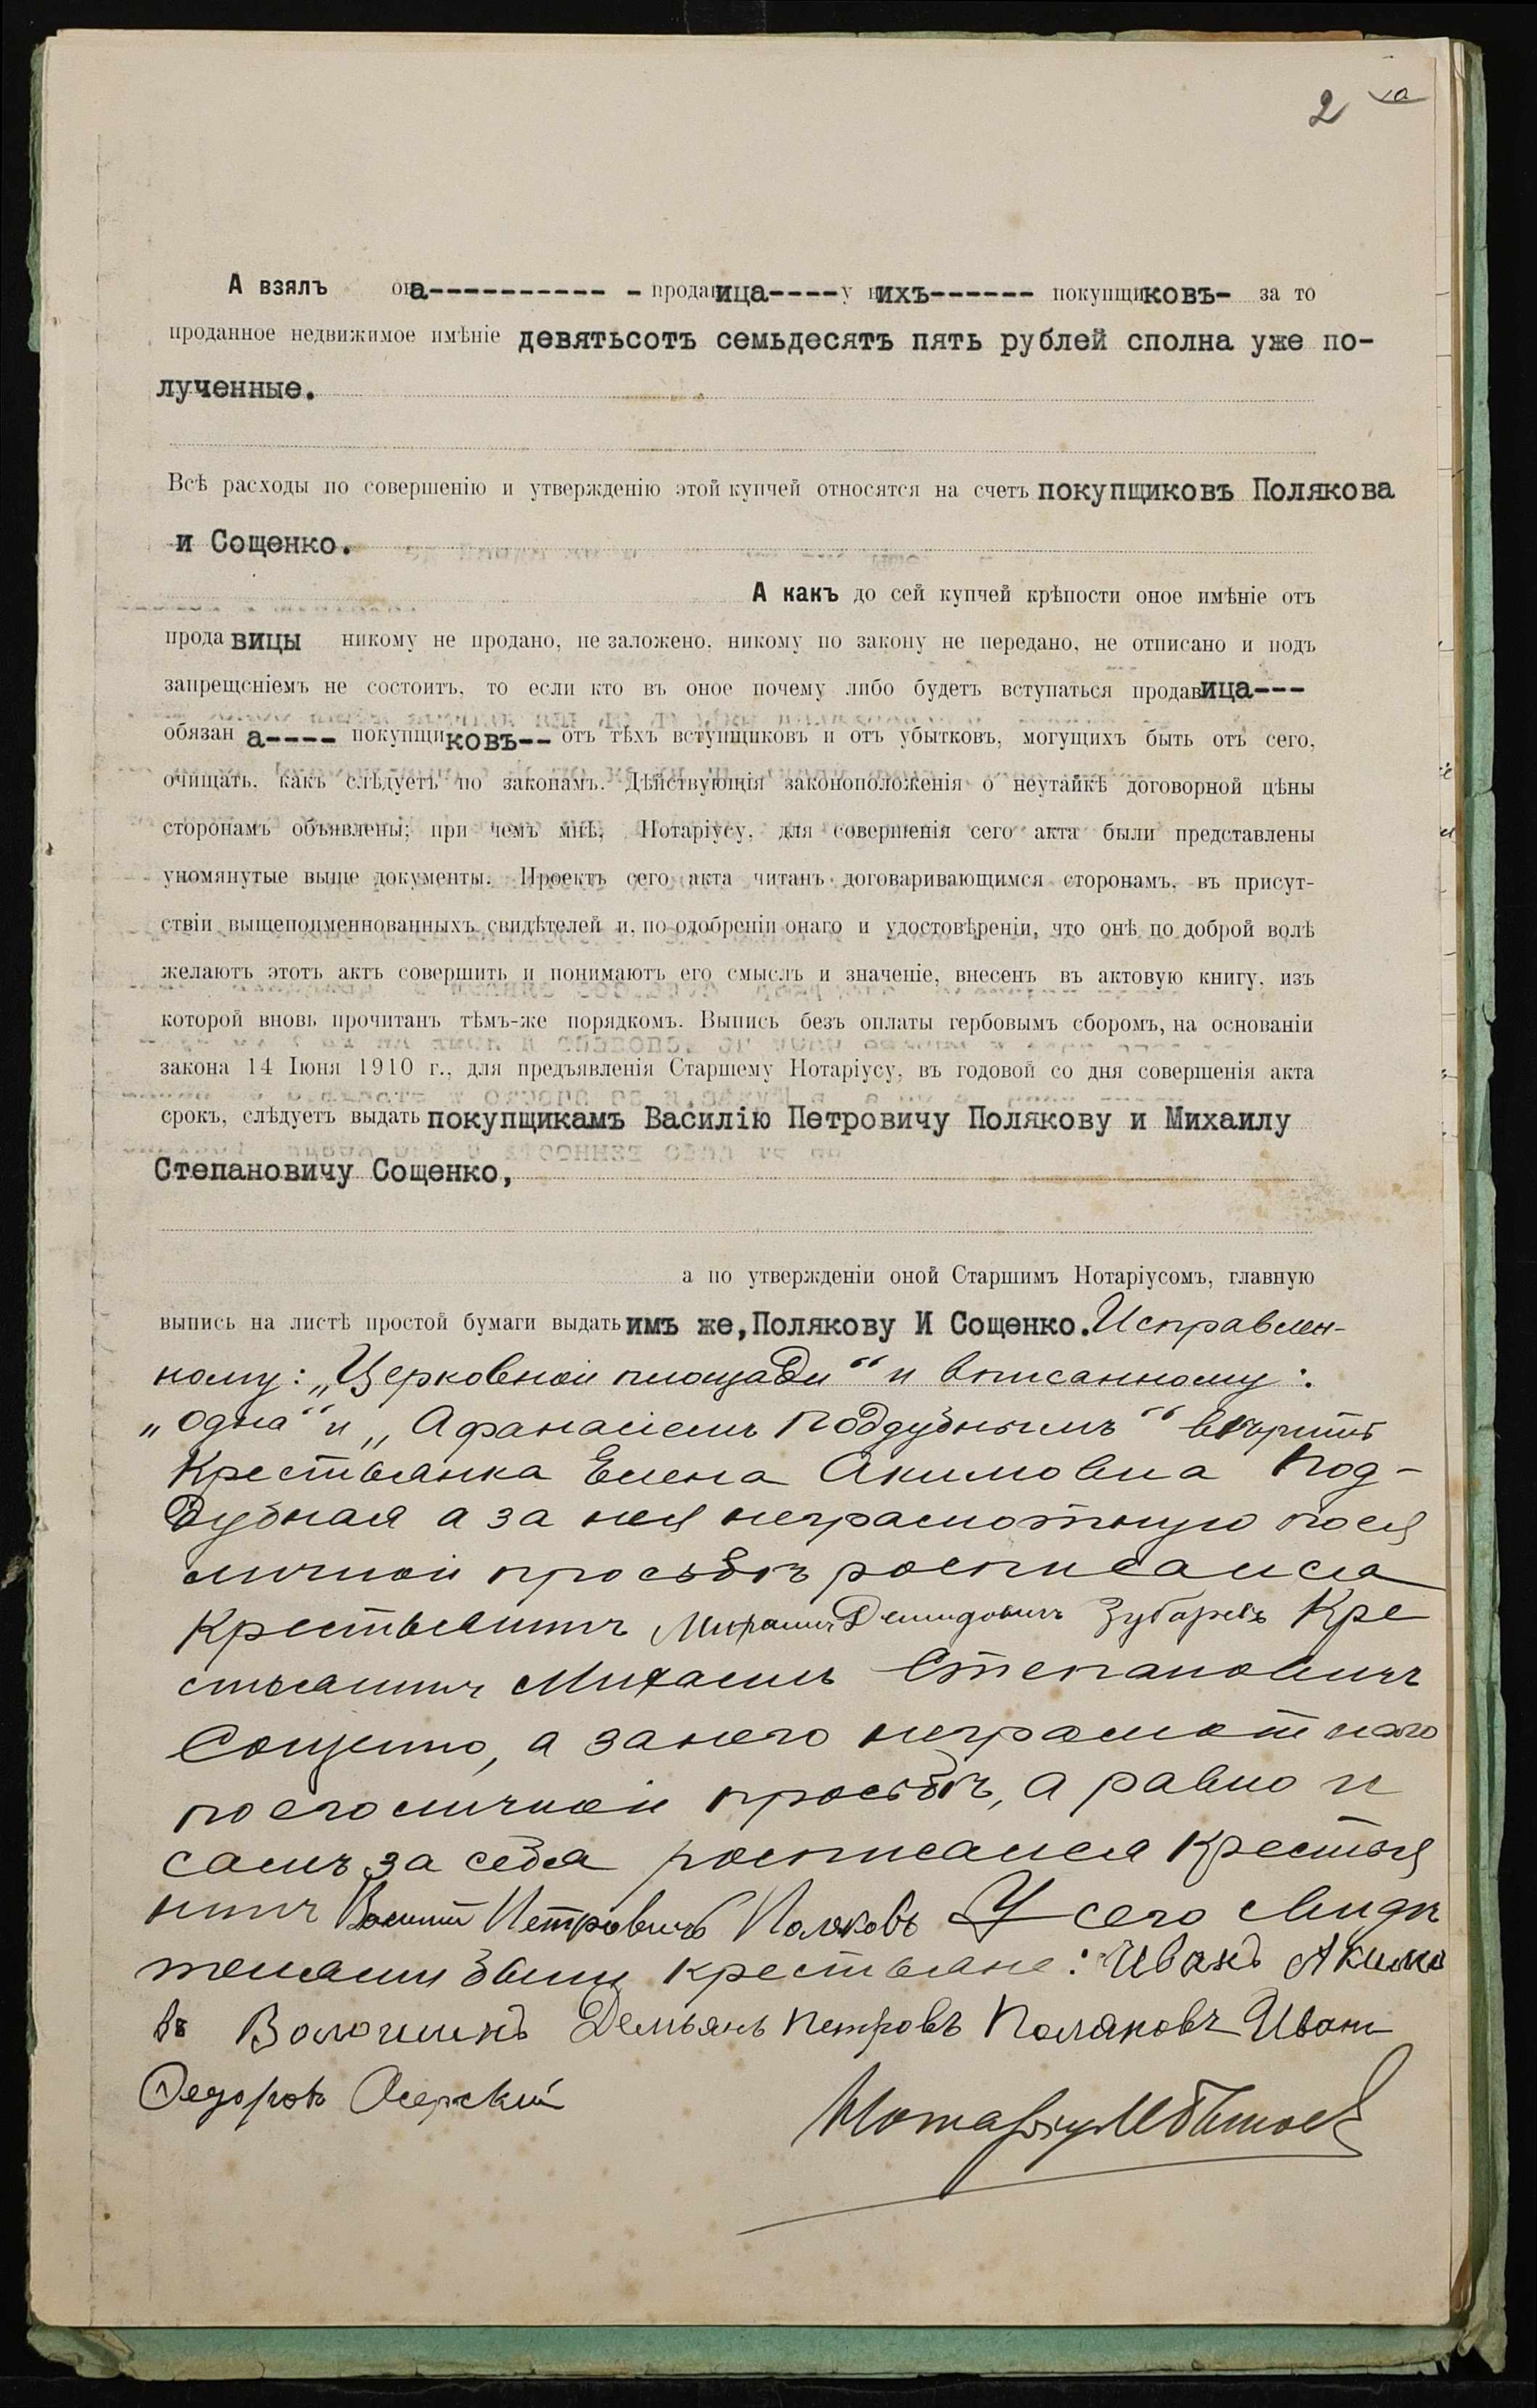 2
А взялъ она----------- - продавица----у нихъ------ покупщиковъ- за то
проданное недвижимое имѣніе девятьсотъ семьдесятъ пять рублей сполна уже по-
лученные.
Всѣ расходы по совершенію и утвержденію этой купчей относятся на счетъ покупщиковъ Полякова
и Сощенко.
А какъ до сей купчей крѣпости оное имѣніе отъ
прода вицы никому не продано, не заложено, никому по закону не передано, не отписано и подъ
запрещеніемъ не состоитъ, то если кто въ оное почему либо будетъ вступаться продавица---
обязан а---- покупщиковъ-- отъ тѣхъ вступщиковъ и отъ убытковъ, могущихъ быть отъ сего,
очищать, какъ слѣдуетъ по законамъ. Дѣйствующія законоположенія о неутайкѣ договорной цѣны
сторонамъ объявлены; при чемъ мнѣ, Нотаріусу, для совершенія сего акта были представлены
упомянутые выше документы. Проектъ сего акта читанъ договаривающимся сторонамъ, въ присут-
ствіи вышепоименнованныхъ свидѣтелей и, по одобреніи онаго и удостовѣреніи, что онѣ по доброй волѣ
желаютъ этотъ актъ совершить и понимаютъ его смыслъ и значеніе, внесенъ въ актовую книгу, изъ
которой вновь прочитанъ тѣмъ-же порядкомъ. Выпись безъ оплаты гербовымъ сборомъ, на основаніи
закона 14 Іюня 1910 г., для предъявленія Старшему Нотаріусу, въ годовой со дня совершенія акта
срокъ, слѣдуетъ выдать покупщикамъ Василію Петровичу Полякову и Михаилу
Степановичу Сощенко,
а по утвержденіи оной Старшимъ Нотаріусомъ, главную
выпись на листѣ простой бумаги выдать имъ же, Полякову И Сощенко. Исправлен-
ному: „Церковной площади“ и вписанному:
„одна“ и „Афанасіемъ Поддубнымъ“ вѣрить
Крестьянка Елена Акимовна Под-
дубная а за нея неграмотную по ея
личной просьбѣ росписался
Крестьянинъ Михаилъ Демидовичъ Зубаревъ Кре
стьянинъ Михаилъ Степановичъ
Сощенко, а за него неграмотнаго
по его личной просьбѣ, а равно и
самъ за себя росписался Крестья
нинъ Василій Петровичъ Поляковъ У сего свидѣ
телями были крестьяне: Иванъ Акимо
въ Волошинъ Демьянъ Петровъ Поляковъ Иванъ
Федоровъ Озерскій
Нотаріусъ